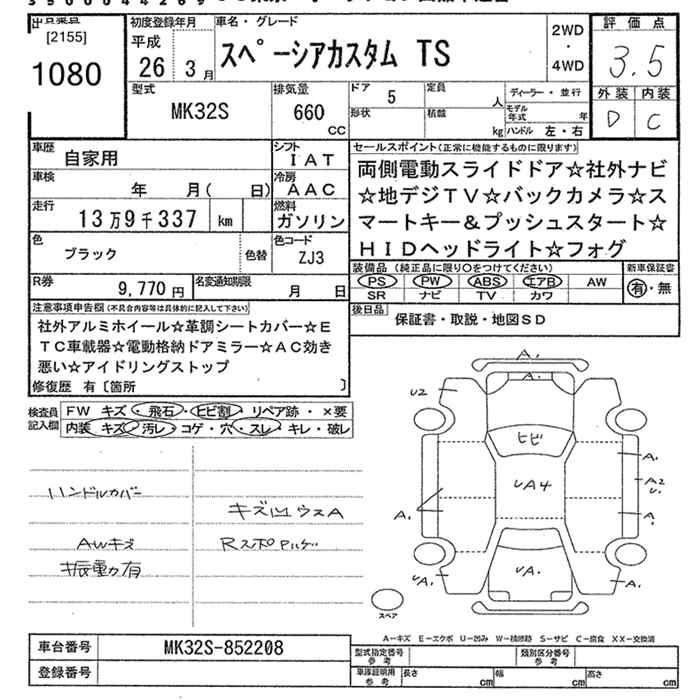 [2155]
1080
初度登録年月
平成
26 3月
車名・グレード
スペーシアカスタム TS
2WD
・
4WD
評価点
3.5
外装 内装
D C
型式
MK32S
排気量
660
CC
ドア 5
形状
定員
人
積載
kg
ディーラー・並行
モデル年式 年
ハンドル 左・右
車歴
自家用
シフト
IAT
車検
年 月( 日)
冷房
AAC
走行
13万9千337 km
燃料
ガソリン
色
ブラック
色替
色コード
ZJ3
R券
9,770円
名変通知期限
月 日
セールスポイント(正常に機能するものに限ります)
両側電動スライドドア☆社外ナビ
☆地デジTV☆バックカメラ☆ス
マートキー&プッシュスタート☆
HIDヘッドライト☆フォグ
装備品 (純正品に限り○をつけてください)
PS PW ABS エアB AW
SR ナビ TV カワ
新車保証書
有・無
後日品
保証書・取説・地図SD
注意事項申告欄(不具合内容等は具体的に記入して下さい)
社外アルミホイール☆革調シートカバー☆E
TC車載器☆電動格納ドアミラー☆AC効き
悪い☆アイドリングストップ
修復歴 有〔箇所 〕
検査員
記入欄
FW キズ・飛石・ヒビ割・リペア跡・×要
内装 キズ・汚レ・コゲ・穴・スレ・キレ・破レ
ハンドルカバー
キズ凹ウスA
AWキズ
振動有
A.
A.
U2
ヒビ
A.
A2
U.
UA4
A.
A.
UA.
UA.
A.
スペア
A-キズ E-エクボ U-凹み W-補修跡 S-サビ C-腐食 XX-交換済
車台番号
MK32S-852208
登録番号
型式指定番号
参考
類別区分番号
参考
車庫証明用
参考
長さ cm
幅 cm
高さ cm